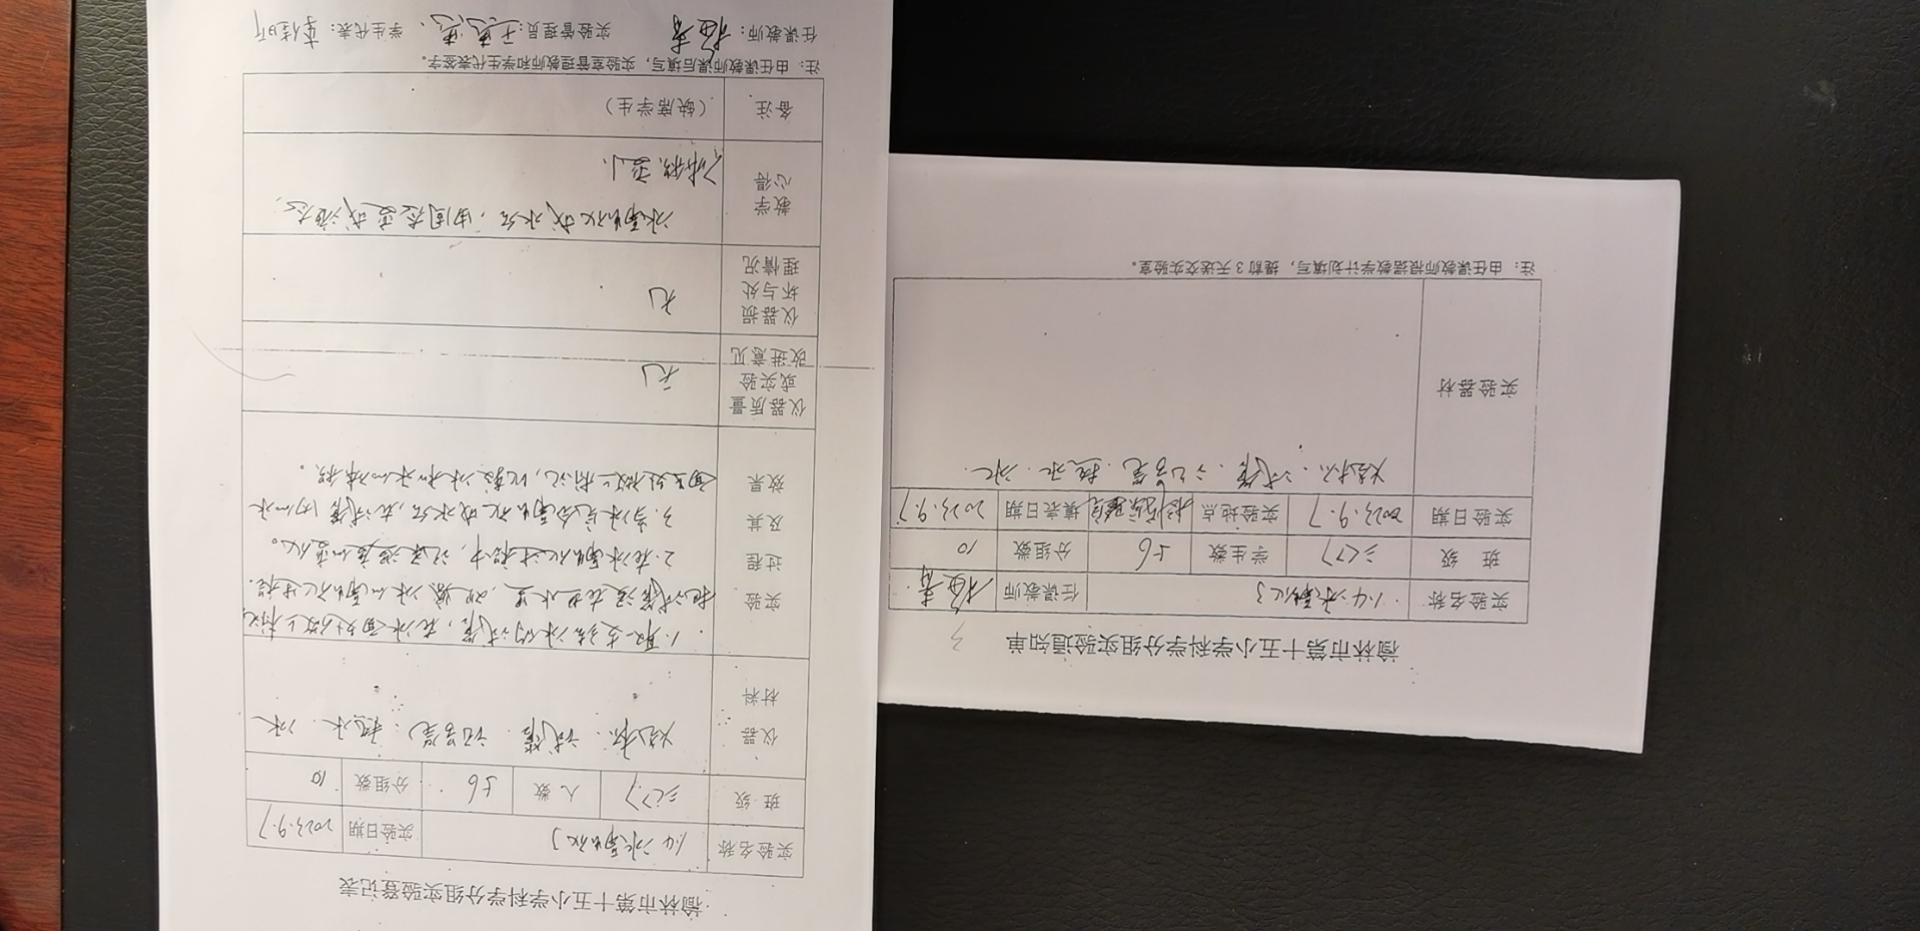 榆林市第十五小学科学分组实验通知单
实验名称 1.4冰融化了 任课教师
班 级 三(7) 学生数 56 分组数 10
实验日期 2023.9.7 实验地点 实验室 填表日期 2023.9.7
实验器材 烧杯、试管、记号笔、热水、冰
注：由任课教师根据教学计划填写，提前3天送交实验室。
榆林市第十五小学科学分组实验登记表
实验名称 1.4冰融化了 实验日期 2023.9.7
班 级 三(7) 人 数 56 分组数 10
仪器材料 烧杯、试管、记号笔、热水、冰
实验过程及其效果
1.取一支结冰的试管，在冰面处做上标记
把试管浸在热水里，观察冰的融化过程。
2.在冰融化过程中，记录温度的变化。
3.当冰完全融化成水后，在试管内的水
面处做上标记，比较冰和水的体积。
仪器质量或实验改进意见 无
仪器损坏与处理情况 无
教学心得 冰融化成水后，由固态变成液态，
体积变小。
备注 （缺席学生）
注：由任课教师课后填写，实验室管理教师和学生代表签字。
任课教师： 实验管理员： 学生代表：